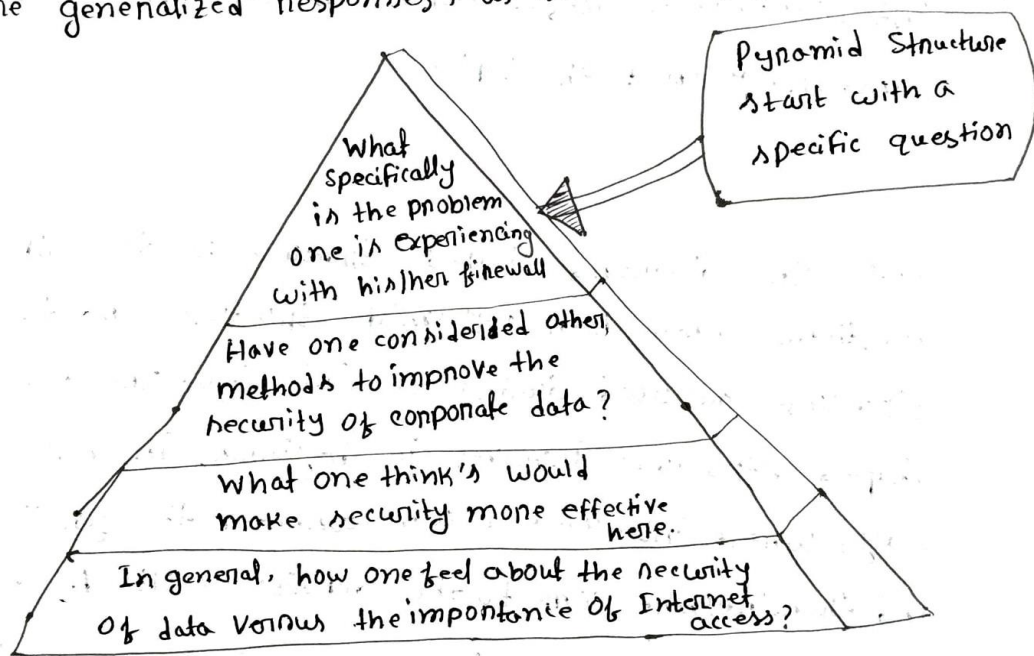 generalized Responses,
Pyramid Structure
start with a
specific question
What
specifically
is the problem
one is experiencing
with his/her firewall
Have one considerided other,
methods to improve the
security of corporate data?
What one think's would
make security more effective
here.
In general, how one feel about the security
of data versus the importance of Internet
access?